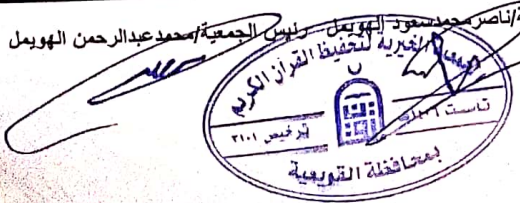 /ناصر محمد سعود الهويمل رئيس الجمعية/محمد عبدالرحمن الهويمل
الخيرية لتحفيظ القرآن الكريم
تأسست ١٤٠٦هـ
ترخيص ٢١٠١
بمحافظة القويعية